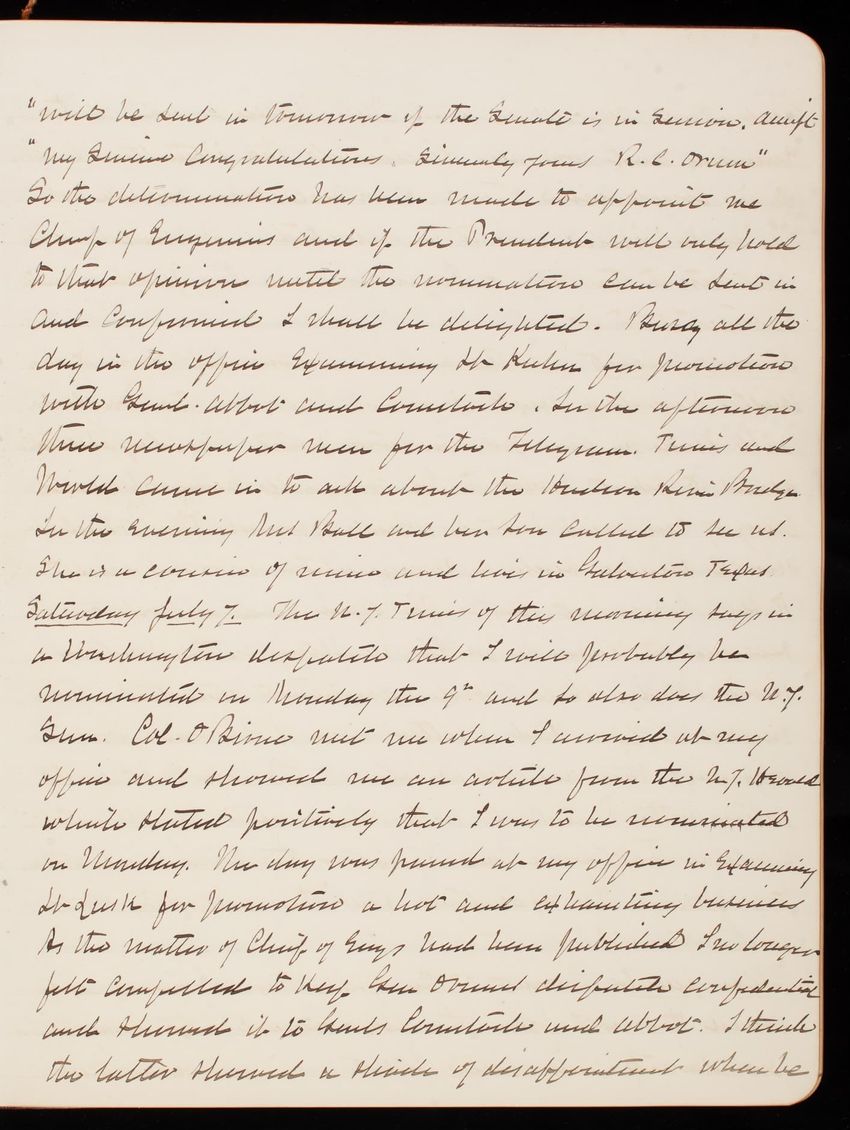 "will be sent in tomorrow if the Senate is in Session. accept
"my Sincere Congratulations. Sincerely yours R. C. Drum"
So the determination has been made to appoint me
Chief of Engineers and if the President will only hold
to that opinion until the nomination can be sent in
and confirmed I shall be delighted. Busy all the
day in the office Examining Lt Kuhn for promotion
with Genl. Abbot and Comstock. In the afternoon
three newspaper men for the Telegram. Times and
World came in to ask about the Hudson River Bridge.
In the Evening Mrs Ball and her Son called to see us.
She is a cousin of mine and lives in Galveston Texas.
Saturday July 7. The N.Y. Times of this morning says in
a Washington despatch that I will probably be
nominated on Monday the 9th and so also does the N.Y.
Sun. Col. O Beirne met me when I arrived at my
office and showed me an article from the N.Y. Herald
which stated positively that I was to be nominated
on Monday. The day was passed at my office in Examining
Lt Lusk for promotion a hot and exhausting business
As the matter of Chief of Engrs had been published I no longer
felt compelled to keep Gen Drums dispatch confidential
and showed it to Genls Comstock and Abbot. I think
the latter showed a shade of disappointment when he